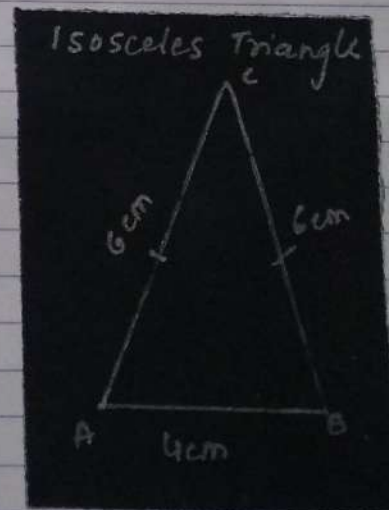 Isosceles Triangle
C
6cm
6cm
A
B
4cm